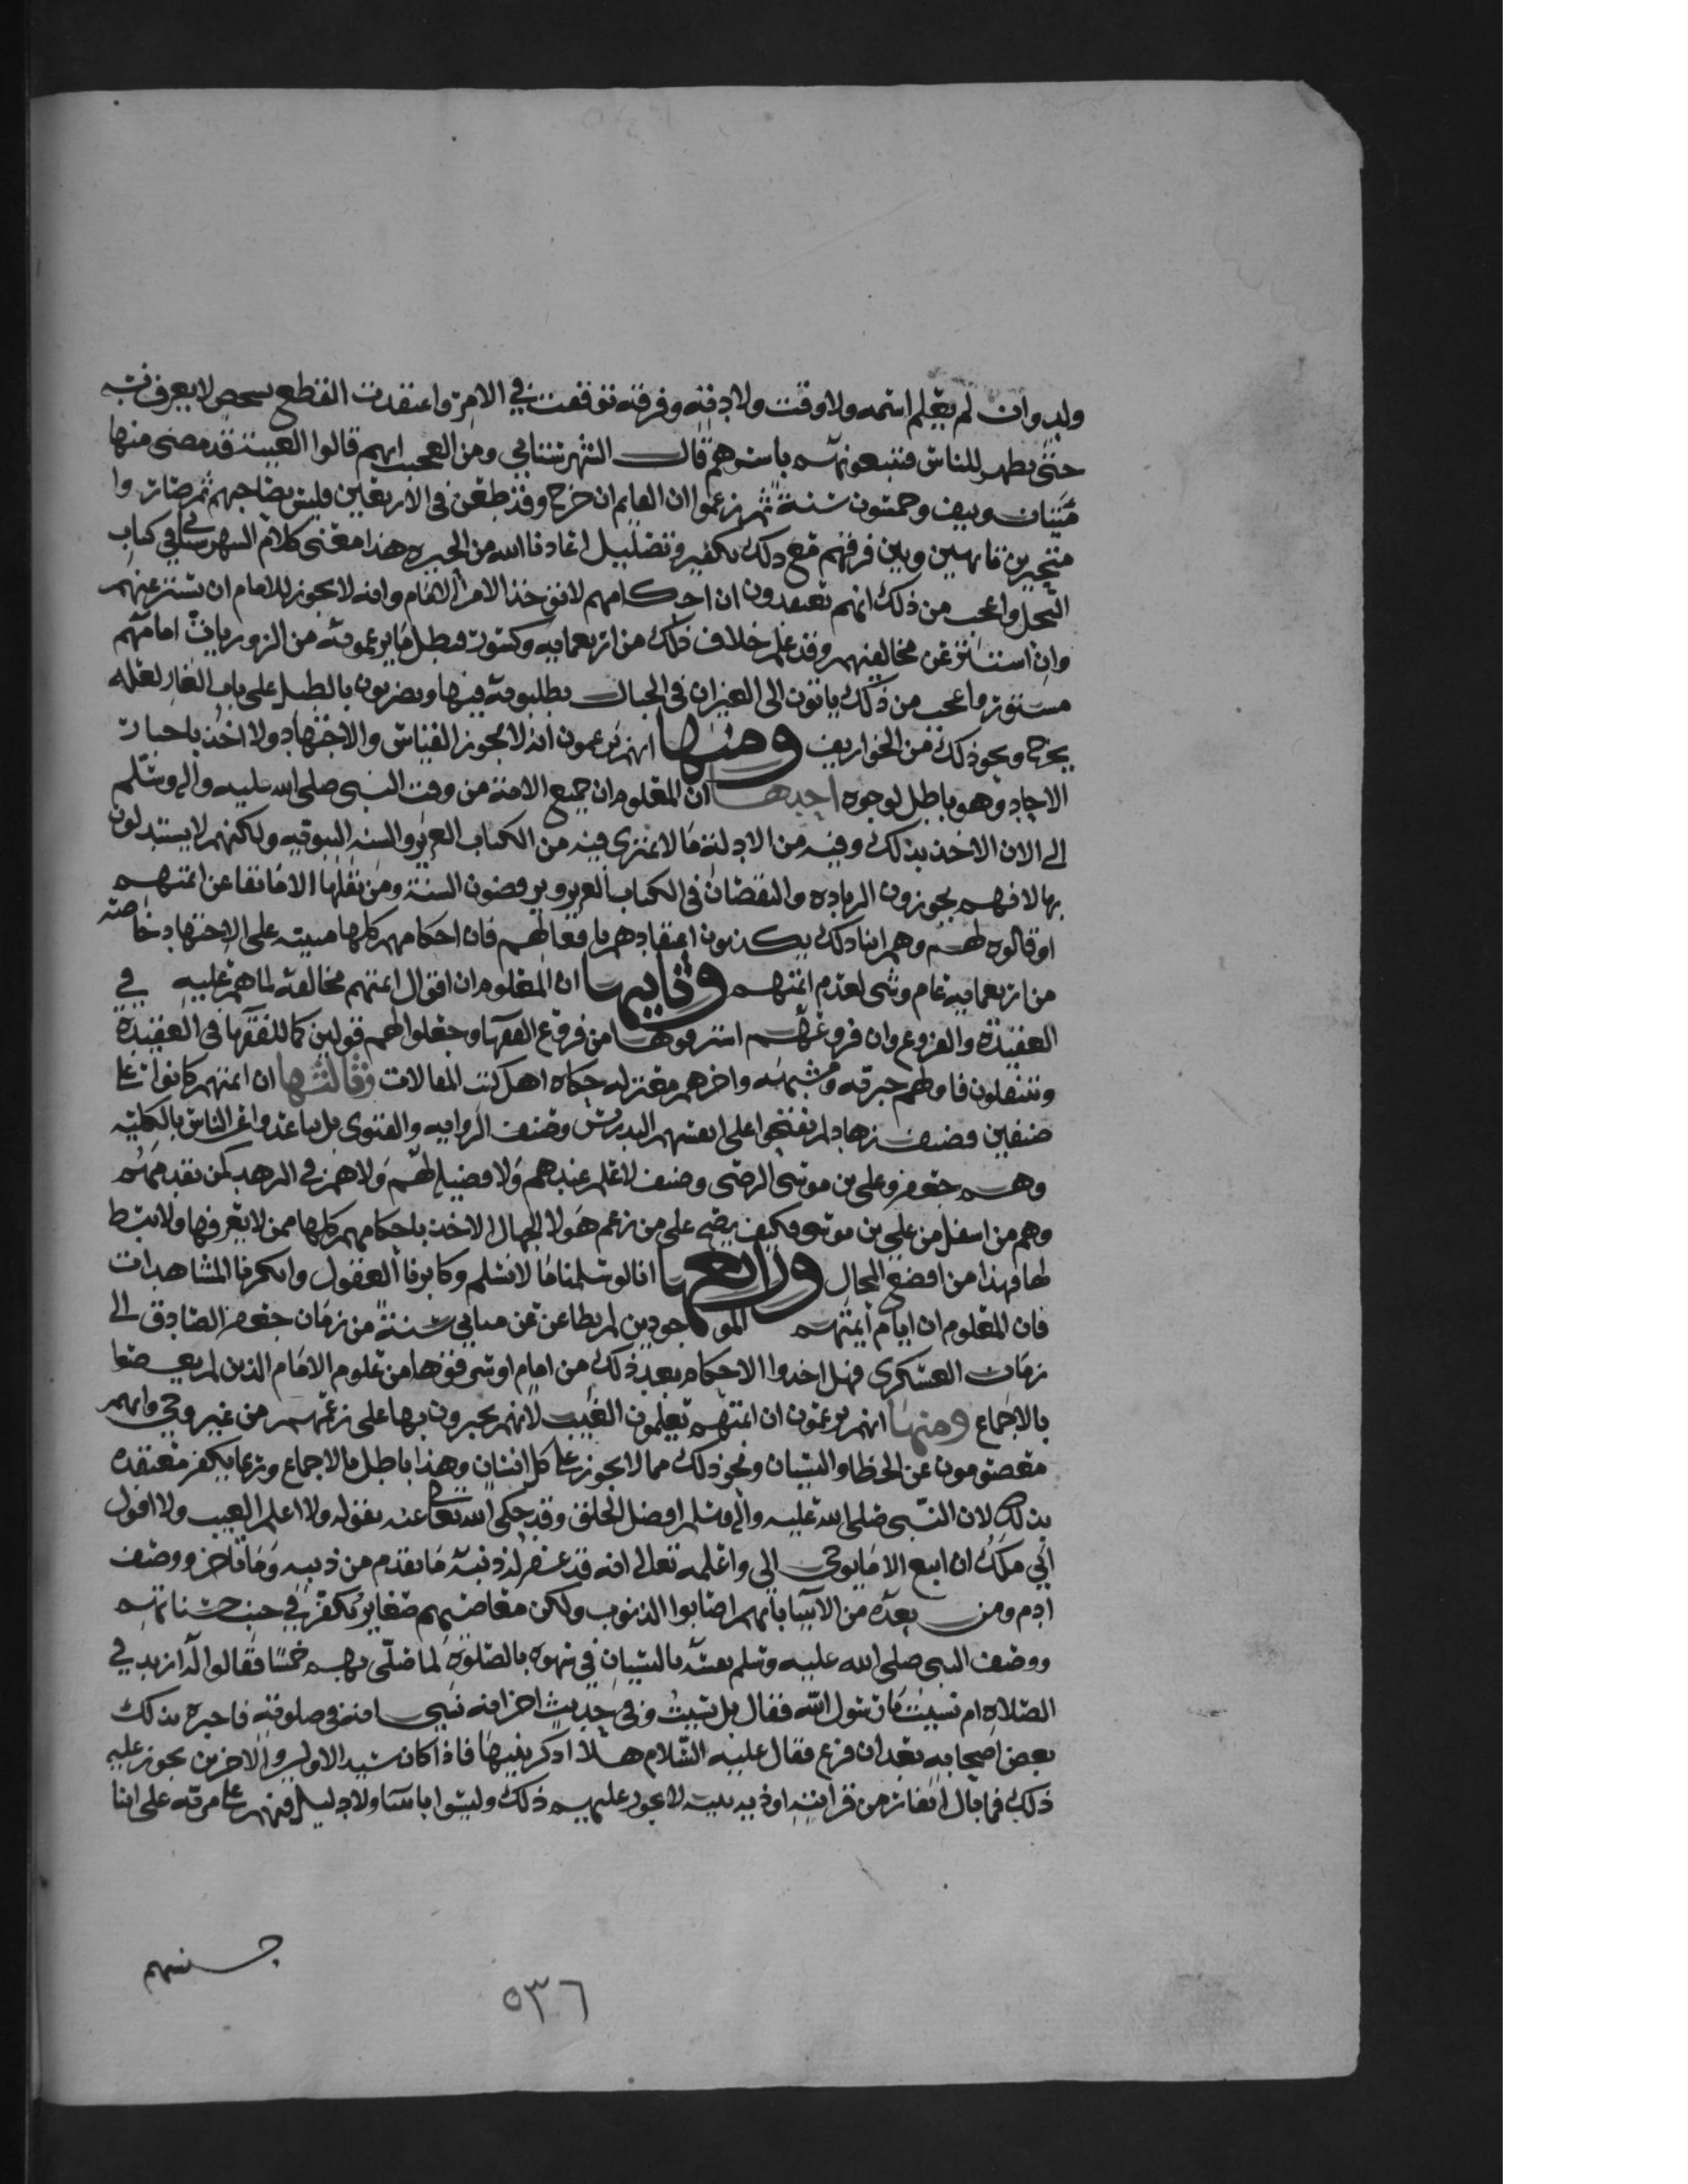 ولد وان لم يعلم اسمه ولا وقت ولادته وفرقة توقفت في الامر واعتقدت القطع بشخص لا يعرف
حتى يظهر للناس فيتبعونه باسرهم قال الشهرستاني ومن العجب انهم قالوا الغيبة قد مضى منها
مئتان ونيف وخمسون سنة ثم زعموا ان القايم ان خرج وقد طعن في الاربعين فليس بصاحبهم ثم صاروا
متحيرين تايهين وبين فرقهم مع ذلك تكفير وتضليل اعاذنا الله من الحيره هذا معنى كلام الشهرستاني في كتاب
النحل واعجب من ذلك انهم يعتقدون ان احكامهم لا تؤخذ الا من الامام وانه لا يجوز للامام ان يستتر عنهم
وان استتر عن مخالفيهم وقد علم خلاف ذلك من اربعمايه وكسور فبطل ما يزعمونه من الزور بان امامهم
مستور وما عجب من ذلك ياتون الى الغيران في الجبال يطلبونه فيها ويضربون بالطبل على باب الغار لعله
يخرج ونحو ذلك من الخواريف ومنها انهم يزعمون انه لا يجوز القياس والاجتهاد ولا اخذ باخبار
الاحاد وهو باطل لوجوه احدها ان المعلوم ان جميع الامة من وقت النبي صلى الله عليه واله وسلم
الى الان الاخذ بذلك وفيه من الادلة ما لا يمترى فيه من الكتاب العزيز والسنه النبويه ولكنهم لا يستدلون
بها لانهم يجوزون الزياده والنقصان في الكتاب العزيز ويرفضون السنة ومن نقلها الا ما نقلا عن ائمتهم
او قالوه لهم وهم ابنا ذلك يكذبون اعتقادهم بافعالهم فان احكامهم كلها مبنية على الاجتهاد خاصة
من اربعمايه عام وشي لعدم ائمتهم وثانيها ان المعلوم ان اقوال ائمتهم مخالفة لما هم عليه في
العقيدة والفروع وان فروعهم استرقوها من فروع الفقها وجعلوا لهم قولين كما للفقها في العقيدة
وينتقلون فاولهم جبرية ومشبهه واخرهم معتزله حكاه اهل كتب المقالات وثالثها ان ائمتهم كانوا على
صنفين فصنف زهاد لم يفتحوا على انفسهم التدريس وصنف الروايه والفتوى بل تباعدوا عن الناس بالكلية
وهم جعفر وعلي بن موسى الرضى وصنف لا علم عندهم ولا فضيلة لهم ولا هم في الزهد كمن تقدمهم
وهم من اسفل من علي بن موسى فكيف يصح على من زعم هولا الجهال الاخذ باحكامهم كلها ممن لا يعرفها ولا ينبط
لها فهذا من افضع المحال ورابعها انا لو سلمنا ما لا نسلم وكابرنا العقول وانكرنا المشاهدات
فان المعلوم ان ايام ائمتهم الموجودين لم يطاعن عن مايتي سنة من زمان جعفر الصادق الى
زمان العسكري فهل اخذوا الاحكام بعد ذلك من امام او شي فوضها من علوم الامام الذين لم يعصتعا
بالاجماع ومنها انهم يزعمون ان ائمتهم يعلمون الغيب لانهم يخبرون بها على زعمهم من غير وحي وانهم
معصومون عن الخطا والنسيان ونحو ذلك مما لا يجوز على كل انسان وهذا باطل بالاجماع وربما يكفر معتقده
بذلك لان النبي صلى الله عليه واله وسلم افضل الخلق وقد حكى الله تعالى عنه بقوله ولا اعلم الغيب ولا اقول
اني ملك ان اتبع الا ما يوحى الي واعلمه تعالى انه قد غفر له ذنبه ما تقدم من ذنبه وما تاخر ووصف
ادم ومن بعده من الانبيا بانهم اصابوا الذنوب ولكن معاصيهم صغاير تكفر في جنب حسناتهم
ووصف النبي صلى الله عليه وسلم نفسه بالنسيان في سهوه بالصلوة لما صلى بهم خمسا فقالوا له ازيد في
الصلاة ام نسيت يا رسول الله فقال بل نسيت وفي حديث اخر انه نسي اية في صلوته فاخبره بذلك
بعض اصحابه بعد ان فرغ فقال عليه السلام هلا اذكرتنيها فاذا كان سيد الاولين والاخرين يجوز عليه
ذلك فما بال انفار من قرابته او ذريته لا يجوز عليهم ذلك وليسوا بانبيا ولا دليل فيهم على مزية على ابنا
جنسهم
٥٣٦